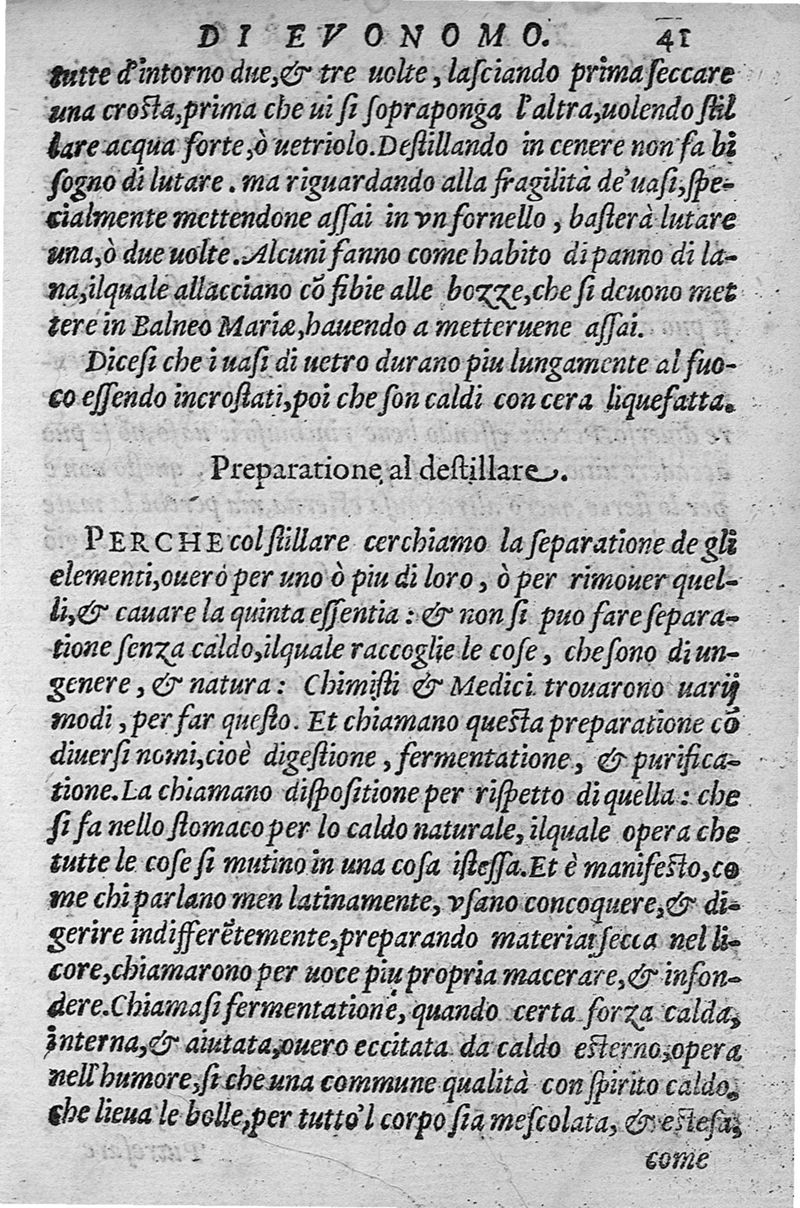 DI EVONOMO. 41
tutte d'intorno due,& tre uolte, lasciando prima seccare
una crosta,prima che ui si sopraponga l'altra,uolendo stil
lare acqua forte,ò uetriolo.Destillando in cenere non fa bi
sogno di lutare. ma riguardando alla fragilità de'uasi,spe-
cialmente mettendone assai in vn fornello, basterà lutare
una,ò due uolte. Alcuni fanno come habito di panno di la-
na,ilquale allacciano cō fibie alle bozze,che si deuono met
tere in Balneo Mariæ,hauendo a metteruene assai.
Dicesi che i uasi di uetro durano piu lungamente al fuo-
co essendo incrostati,poi che son caldi con cera liquefatta.
Preparatione al destillare.
PERCHE col stillare cerchiamo la separatione de gli
elementi,ouero per uno ò piu di loro, ò per rimouer quel-
li,& cauare la quinta essentia: & non si puo fare separa-
tione senza caldo,ilquale raccoglie le cose, che sono di un-
genere, & natura: Chimisti & Medici trouarono uarij
modi, per far questo. Et chiamano questa preparatione cō
diuersi nomi,cioè digestione, fermentatione, & purifica-
tione.La chiamano dispositione per rispetto di quella: che
si fa nello stomaco per lo caldo naturale, ilquale opera che
tutte le cose si mutino in una cosa istessa.Et è manifesto,co
me chi parlano men latinamente, vsano concoquere,& di-
gerire indifferētemente,preparando materia secca nel li-
core,chiamarono per uoce piu propria macerare,& infon-
dere.Chiamasi fermentatione, quando certa forza calda,
interna,& aiutata,ouero eccitata da caldo esterno,opera
nell'humore,si che una commune qualità con spirito caldo,
che lieua le bolle,per tutto'l corpo sia mescolata, & estesa,
come